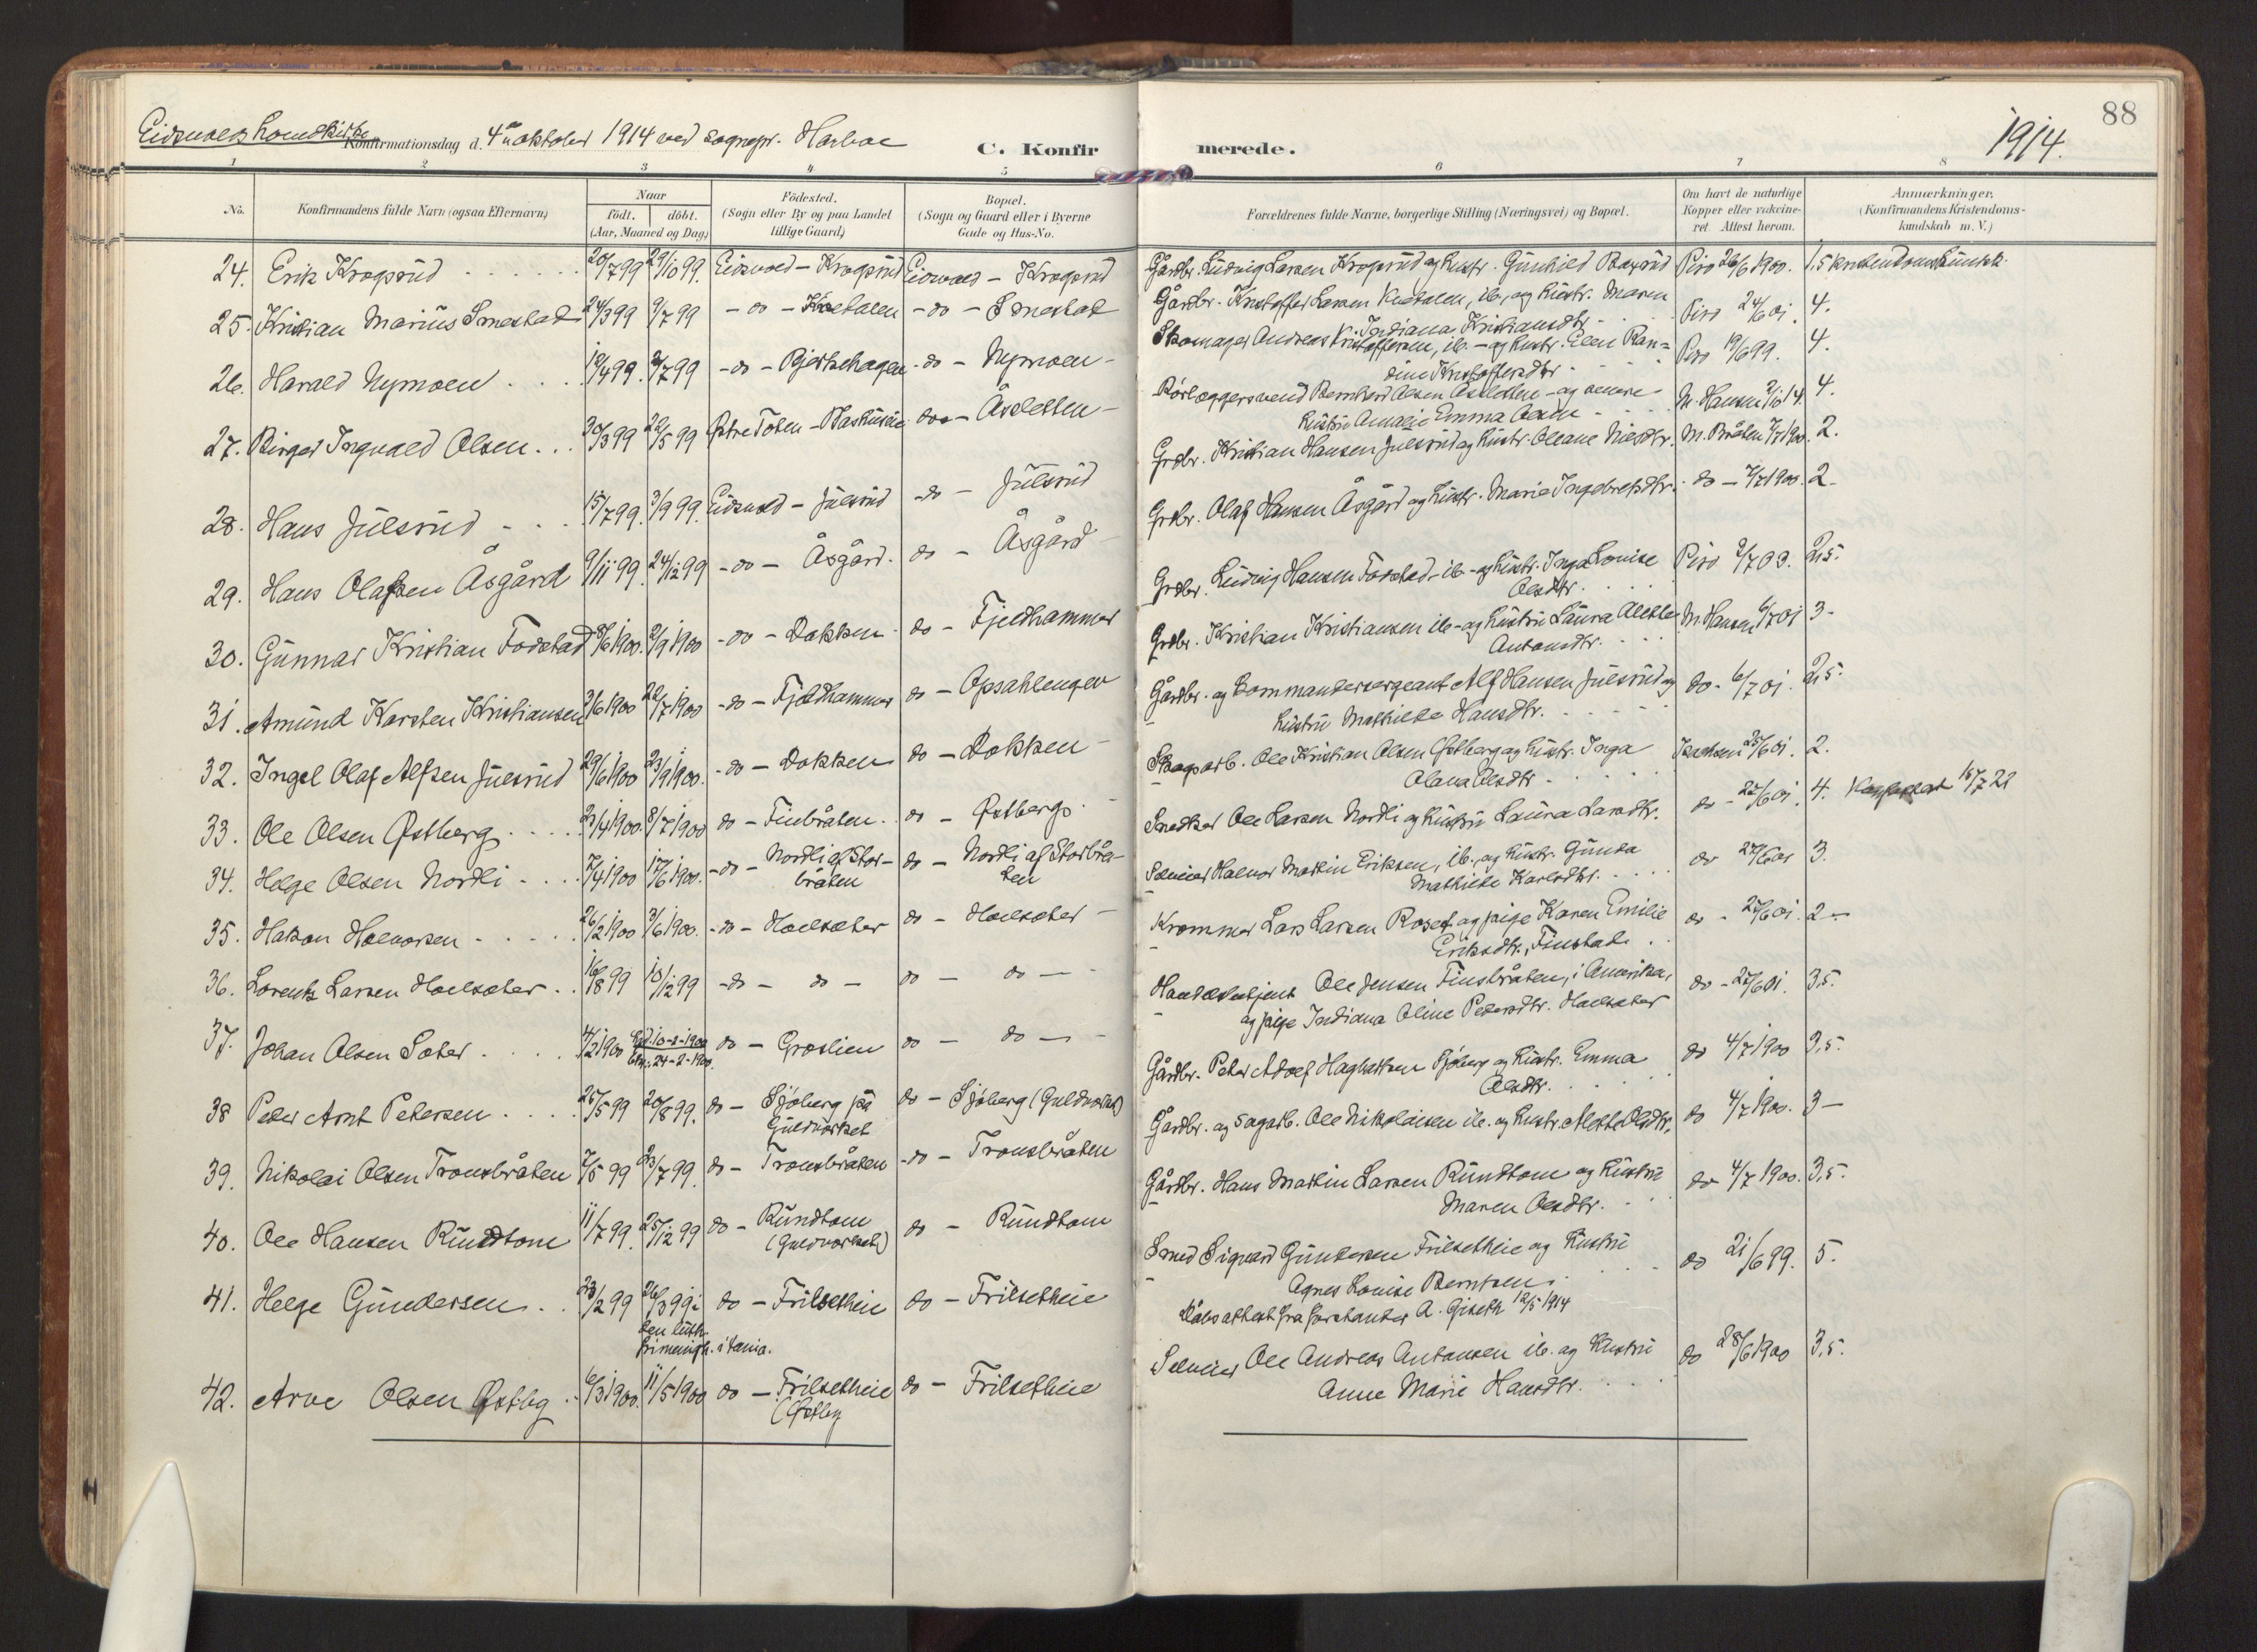 88
Eidsvolds Landkirke
Konfirmationsdag d. 4de oktober 1914 ved sognepr. Harboe
C. Konfirmerede.
1914.
1 2 3 4 5 6 7 8
No.
Konfirmandens fulde Navn (ogsaa Efternavn)
Naar
födt. döbt.
(Aar, Maaned og Dag)
Födested.
(Sogn eller By og paa Landet
tillige Gaard)
Bopæl.
(Sogn og Gaard eller i Byerne
Gade og Hus-No.
Forældrenes fulde Navne, borgerlige Stilling (Næringsvei) og Bopæl.
Om havt de naturlige
Kopper eller vakcine-
ret. Attest herom.
Anmærkninger.
(Konfirmandens Kristendoms-
kundskab m. V.)
24. Erik Krogsrud 20/7 99 29/10 99. Eidsvold - Krogsrud Eidsvold - Krogsrud Gårdbr. Ludvig Larsen Krogsrud og hustr. Gunhild 26/6 1900. 1.5 kristendomskundsk.
25. Kristian Marius Smestad 24/3 99 9/7 99 - do - - do - Smestad Gårdbr. Kristoffer Larsen ib., og hustr. Maren
Indiana Kristiansdtr. 24/6 01. 4.
26. Harald Nymoen 19/4 99. 2/7 99 - do - Bjerkehagen - do - Nymoen - Skomager Andreas Kristoffersen, ib. - og hustr. Elen Ran=
dine Kristoffersdtr 19/6 99. 4.
27. Birger Ingvald Olsen 30/3 99 22/5 99 Østre Toten - do - Åsletten - Rørlæggersvend Bernhard Olsen Åsletten - og
hustru Amalie Emma Olsen M. Hansen 2/10 14. 4.
28. Hans Julsrud 15/7 99. 3/9 99. Eidsvold - Julsrud - do - Julsrud Grdbr. Kristian Hansen Julsrud og hustr. Oleane Nilsdtr. M. Bråten 7/7 1900. 2.
29. Hans Olafsen Åsgård 9/11 99. 24/12 99 - do - Åsgård. do - Åsgård - Grdbr. Olaf Hansen Åsgård og hustr. Marie Ingebretsdtr. - do - 7/7 1900. 2 -
30. Gunnar Kristian Fodstad 8/6 1900. 2/9 1900 - do - Dokken - do - Fjeldhammer Grdbr. Ludvig Hansen Fodstad - ib - og hustr. Inga Louise
Olsdtr. 9/7 03. 2,5.
31. Amund Karsten Kristiansen 3/6 1900 22/7 1900 - do - Fjeldhammer do - Opsahlengen Grdbr. Kristian Kristiansen ib - og hustru Laura
Antonsdtr. M. Hansen 6/7 01 3 -
32. Ingel Olaf Alfsen Julsrud 29/6 1900 23/9 1900. - do - Dokken do - Dokken - Gårdbr. og Kommandersergeant Alf Hansen Julsrud og
hustru Mathilde Hansdtr. do - 6/7 01. 2,5.
33. Ole Olsen Østberg 8/7 1900 do - Finbråten do - Østberg. Skogarb. Ole Kristian Olsen Østberg og hustr. Inga
Olava Olsdtr - 25/6 01. 2.
34. Helge Olsen Nordli 7/4 1900 17/6 1900. - do - Nordli af Stor-
bråten do - Nordli af Storbrå-
ten Snedker Ole Larsen Nordli og hustru Laura Larsdtr. do - 25/6 01. 4. 15/7 22
35. Håkon Halvorsen 26/2 1900 3/6 1900. - do - Hoelsæter do - Hoelsæter - Halvor Martin Eriksen, ib., og hustr. Gunda
Mathilde Karlsdtr. do 27/6 01 3.
36. Lorentz Larsen Hoelsæter 16/8 99 10/12 99 - do - do - do - do - Kræmmer Lars Larsen og pige Karen Emilie
Eriksdtr., Finstad do - 27/6 01. 2 -
37. Johan Olsen Sæter 4/2 1900 do - Græslien do - do - Ole Jensen Finsbråten, i Amerika,
og pige Indiana Oline Pedersdtr. Hoelsæter do - 27/6 01. 3,5.
38 Peder Arnt Petersen 25/5 99 20/8 99. do - Sjøberg på
Guldværket do - Sjøberg (Guldværket) Gårdbr. Peter Adolf Sjøberg og hustr. Emma
Olsdtr. do 4/7 1900 3,5.
39. Nikolai Olsen Tronsbråten 7/5 99 23/7 99. do - Tronsbråten - do - Tronsbråten Gårdbr. og sagarb. Ole Nikolaisen ib. og hustr. Mathe Olsdtr. do 4/7 1900. 3 -
40. Ole Hansen Rundtom 11/7 99. 25/12 99 do - Rundtom
(Guldværket) do - Rundtom Gårdbr. Hans Martin Larsen Rundtom og hustru
Maren Olsdtr. do 4/7 1900. 3,5.
41. Helge Gundersen 23/2 99 26/3 99 i do - Frilsetheie do - Frilsetheie Smed Sigvard Gundersen Frilsetheie og hustru
den luth.
frimenigh. i Tania. Agnes Louise Berntsen.
Dåbsattest fra forstander A. Giseth 12/5 1914 do 21/6 99. 5.
42. Arve Olsen Østby 6/3 1900. 11/5 1900 do - Frilsetheie
(Østby do - Frilsetheie Ole Andreas Antonsen ib. og hustru
Anne Marie Hansdtr. do 28/6 1900 3,5.